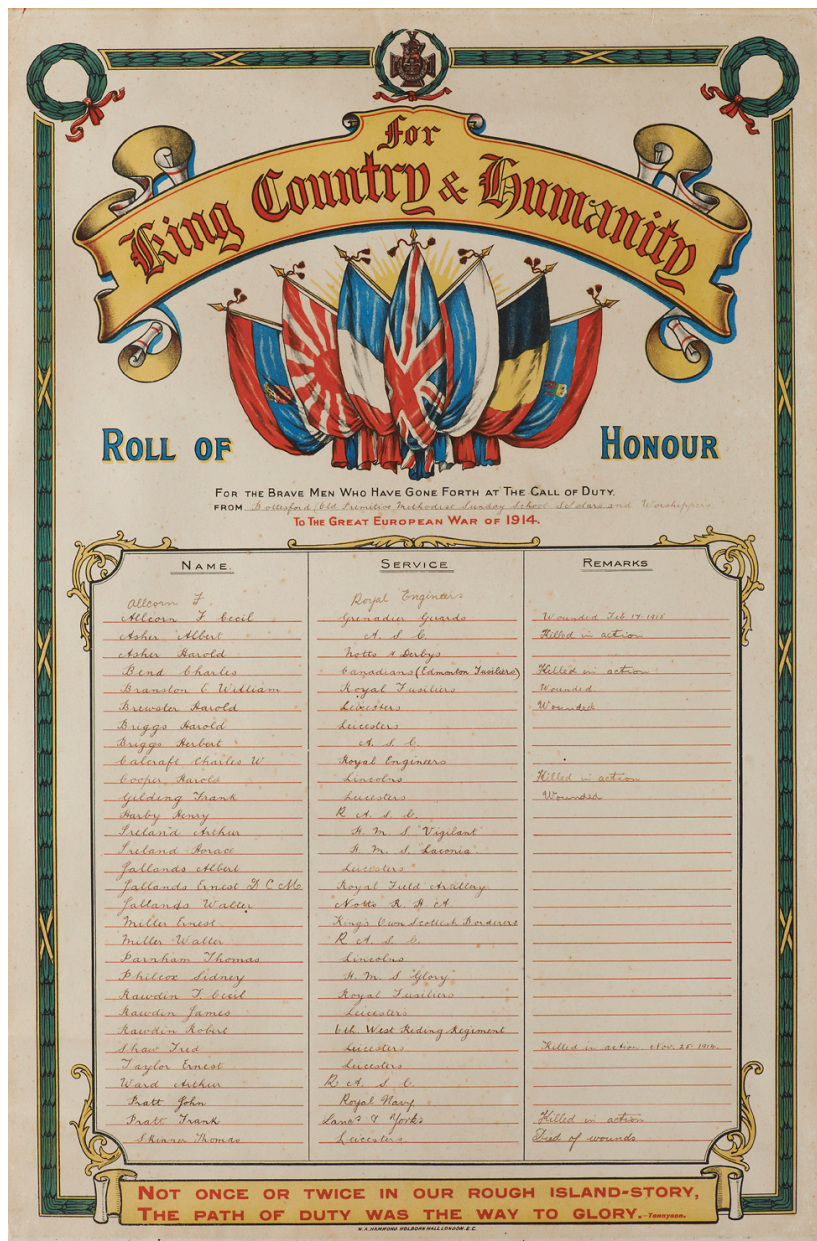 For
King Country & Humanity
ROLL OF HONOUR
FOR THE BRAVE MEN WHO HAVE GONE FORTH AT THE CALL OF DUTY.
FROM Bottesford (Old Primitive Methodist Sunday School Scholars and Worshippers
TO THE GREAT EUROPEAN WAR OF 1914.
NAME. SERVICE REMARKS
Allcorn F. Royal Engineers
Allcorn F. Cecil Grenadier Guards Wounded Feb 17-1915
Asher Albert A. S. C. Killed in action
Asher Harold Notts & Derbys
Bend Charles Canadians (Edmonton Fusiliers) Killed in action
Branston C William Royal Fusiliers Wounded
Brewster Harold Leicesters Wounded
Briggs Harold Leicesters
Briggs Herbert A. S. C.
Calcraft Charles W Royal Engineers
Cooper Harold Lincolns Killed in action
Gilding Frank Leicesters Wounded
Harby Henry R A. S. C.
Ireland Arthur H. M. S "Vigilant"
Ireland Horace H. M. S. "Laconia".
Jallands Albert Leicesters
Jallands Ernest D C M Royal Field Artillery
Jallands Walter Notts R H A
Miller Ernest King's Own Scottish Borderers
Miller Walter R A. S. C.
Parnham Thomas Lincolns
Philcox Sidney H. M. S "Glory"
Rawdin F. Cecil Royal Fusiliers
Rawdin James Leicesters
Rawdin Robert 6th West Riding Regiment
Shaw Fred Leicesters Killed in action Nov. 25 1916.
Taylor Ernest Leicesters
Ward Arthur R A. S. C.
Pratt John Royal Navy
Pratt Frank Lancs & Yorks Killed in action
Skinner Thomas Leicesters Died of wounds
NOT ONCE OR TWICE IN OUR ROUGH ISLAND-STORY,
THE PATH OF DUTY WAS THE WAY TO GLORY.—Tennyson.
W. A. HAMMOND HOLBORN HALL LONDON. E.C.